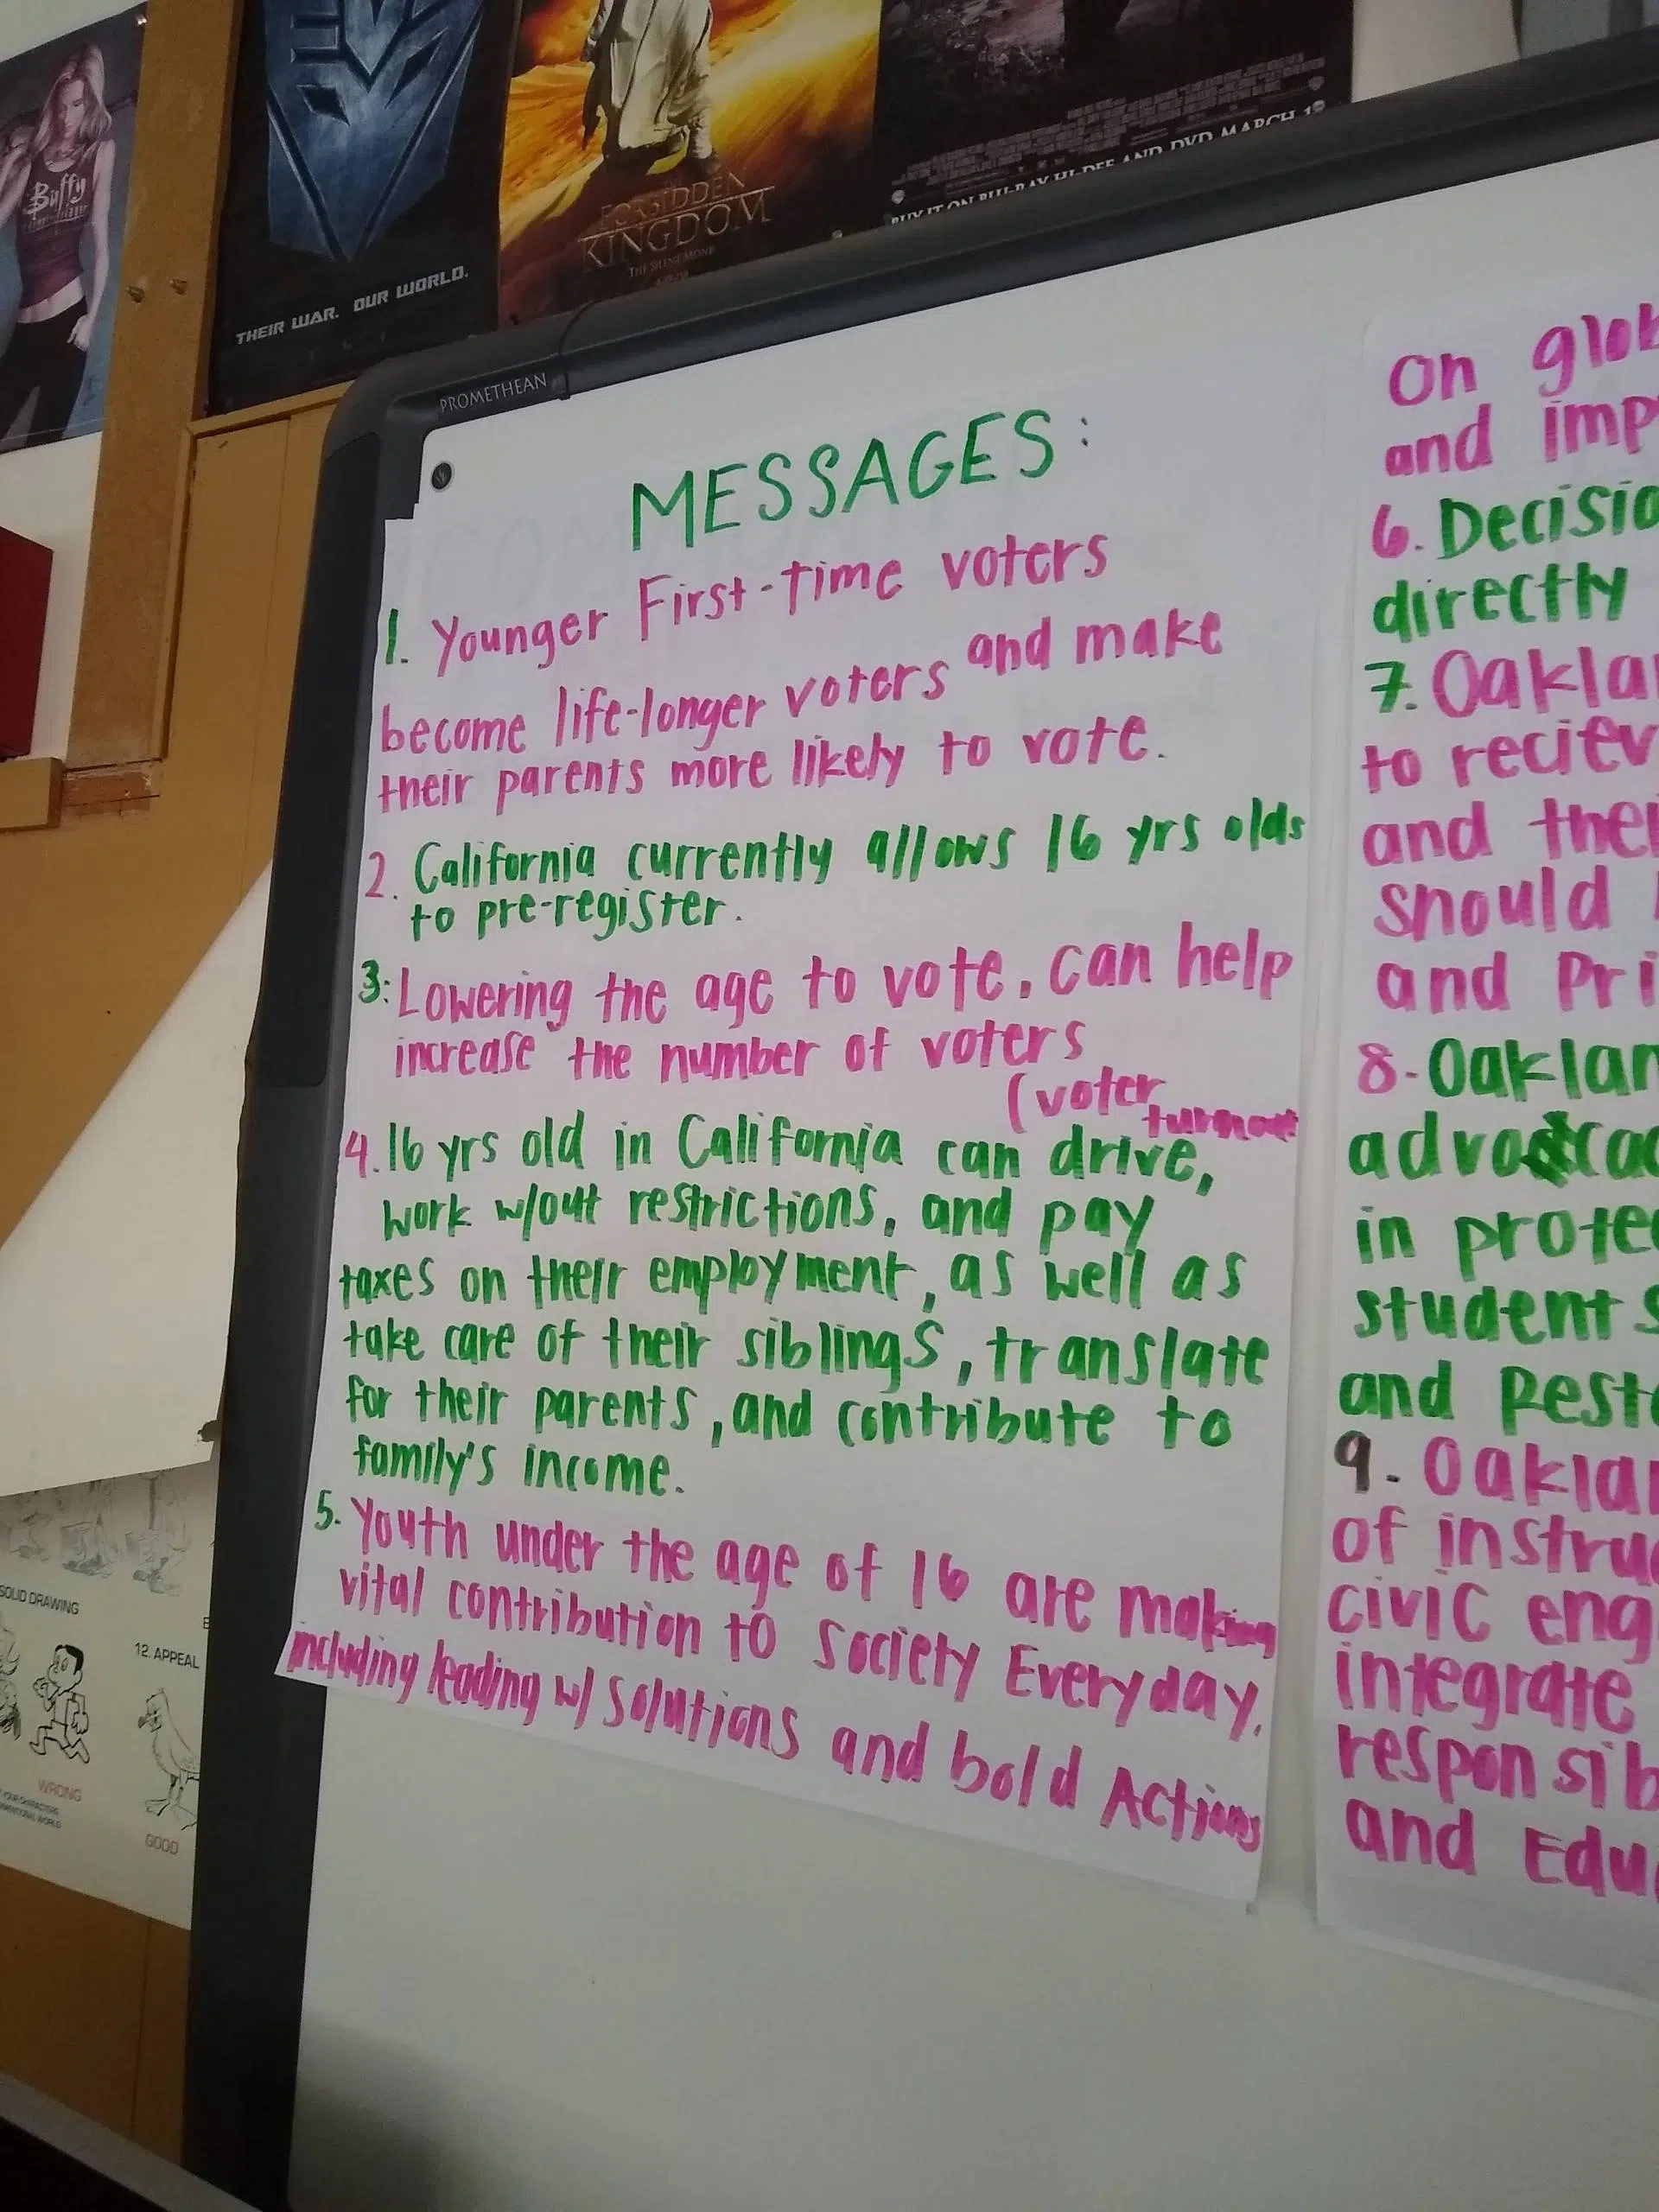 Buffy
THEIR WAR. OUR WORLD.
FORBIDDEN
KINGDOM
THE SILENT MONK
BUY IT ON BLU-RAY HI-DEF AND DVD MARCH
PROMETHEAN
MESSAGES:
1. Younger First-time voters
become life-longer voters and make
their parents more likely to vote.
2. California currently allows 16 yrs olds
to pre-register.
3: Lowering the age to vote. can help
increase the number of voters
(voter
turnout
4. 16 yrs old in California can drive,
work w/out restrictions, and pay
taxes on their employment, as well as
take care of their siblings, translate
for their parents, and contribute to
family's income.
5. Youth under the age of 16 are making
vital contribution to society Everyday.
including leading w/ solutions and bold Actions
On glob
and imp
6. Decisio
directly
7. Oaklan
to reciev
and thei
should
and Pri
8- Oaklan
in prote
students
and Rest
9- Oaklan
of instru
civic eng
integrate
responsib
and Edu
SOLID DRAWING
12. APPEAL
WRONG
GOOD